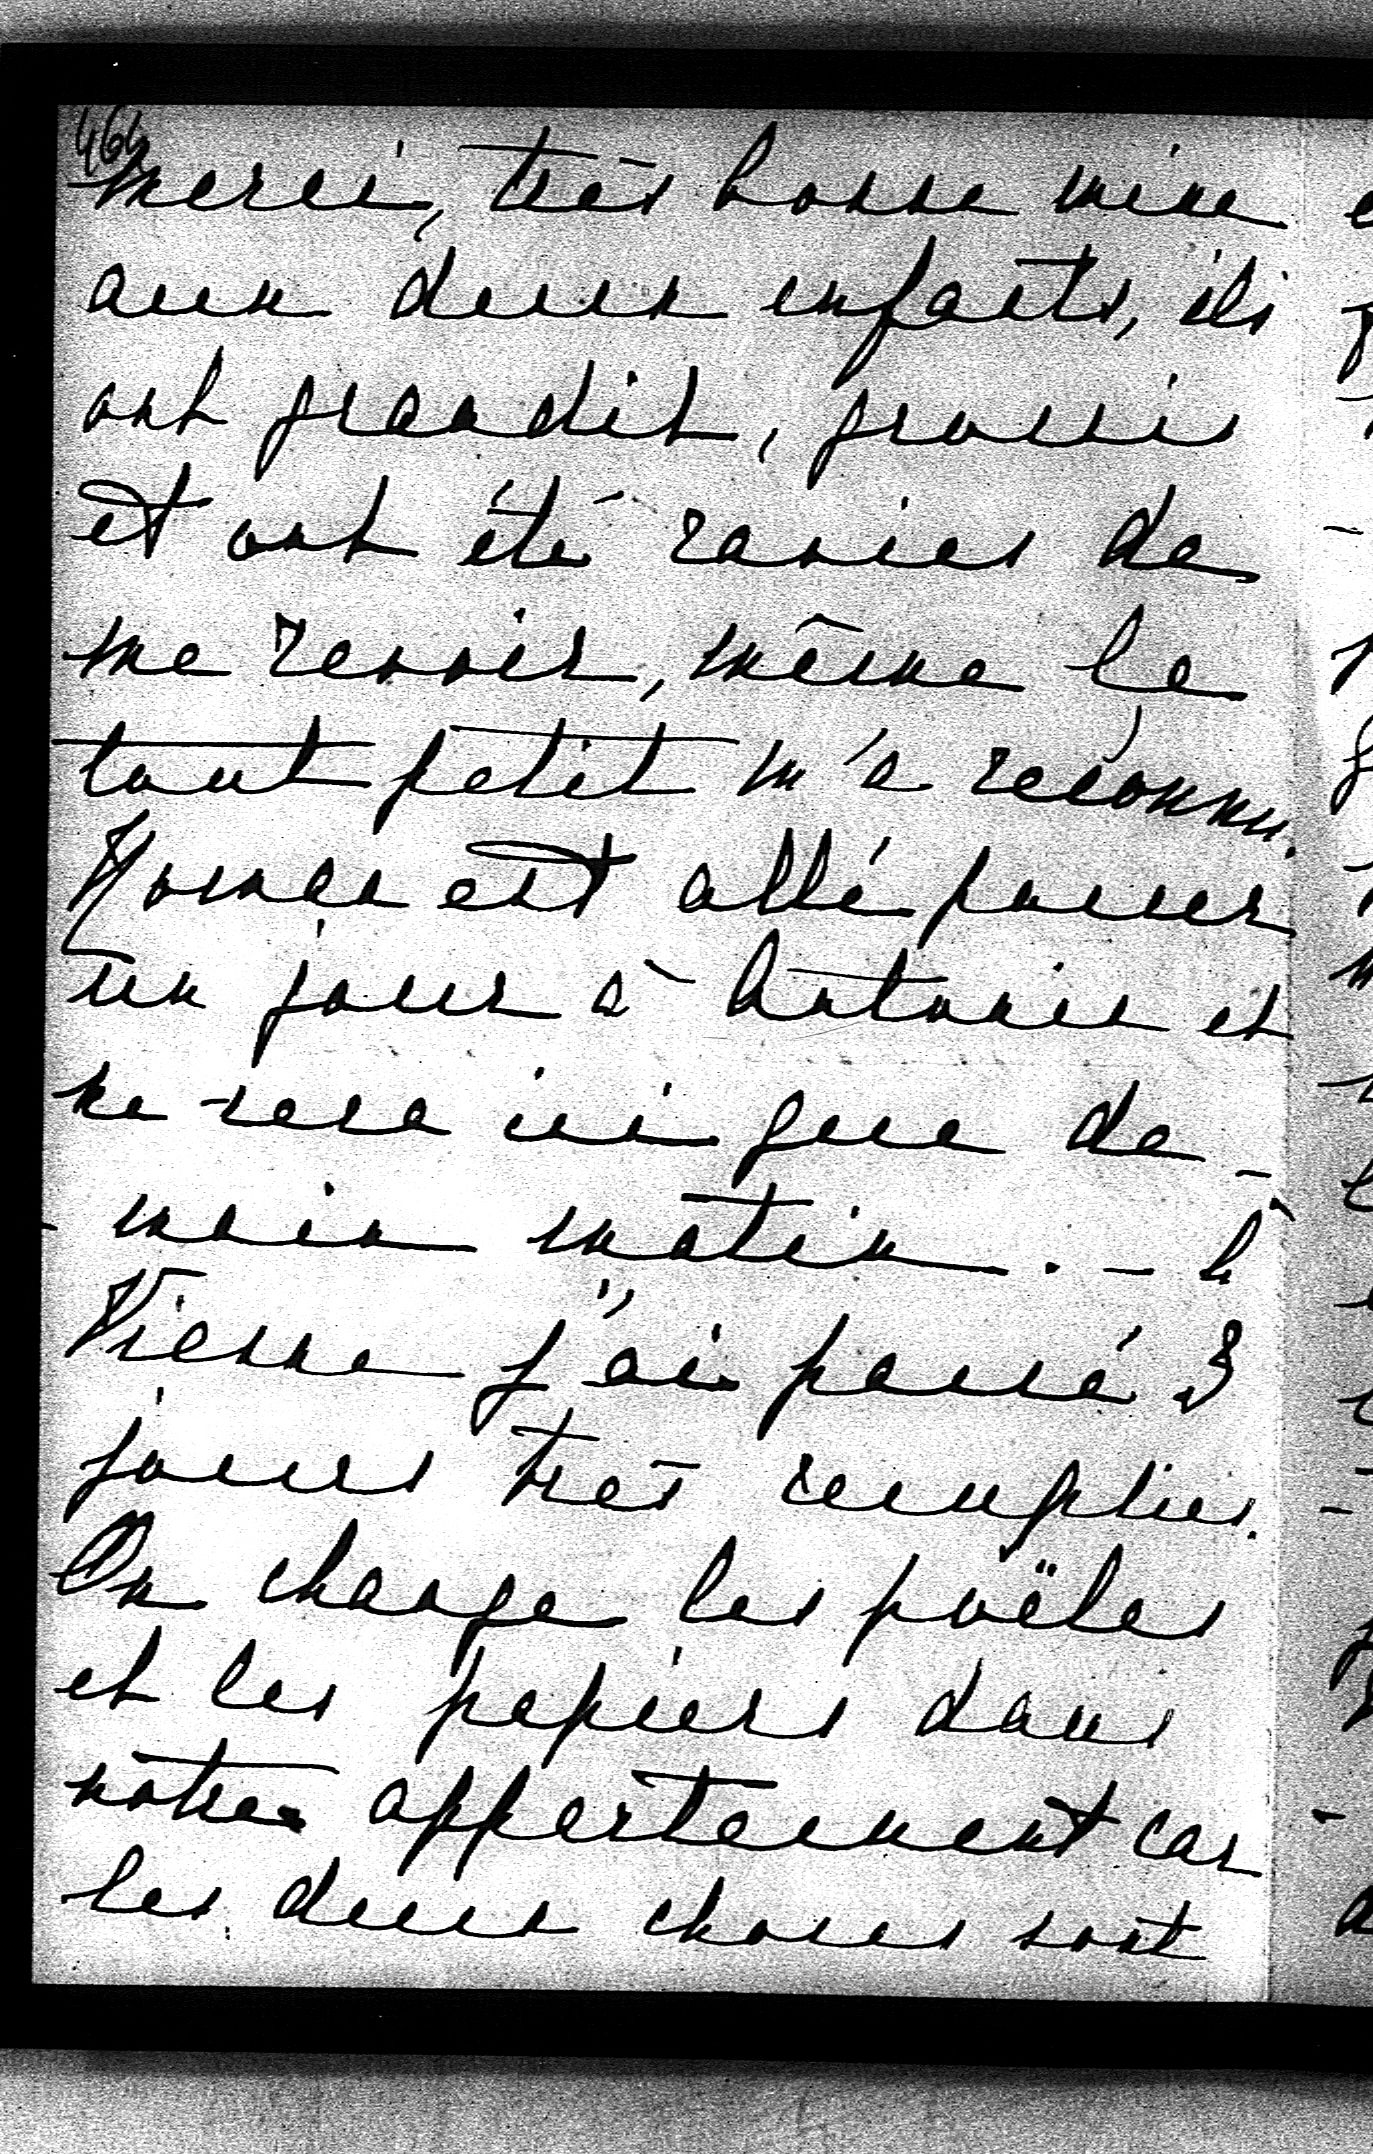 464
merci, très bonne mine
aux deux enfants, ils
ont grandit, grossis
et ont été ravies de
me revoir, même le
tout petit m'a reconnu.
est allé passer
un jour à Antonin et
ne sera ici que de-
main matin. - À
Vienne j'ai passé 3
jours très remplies.
On change les poëles
et les papiers dans
notre appartement car
les deux choses sont